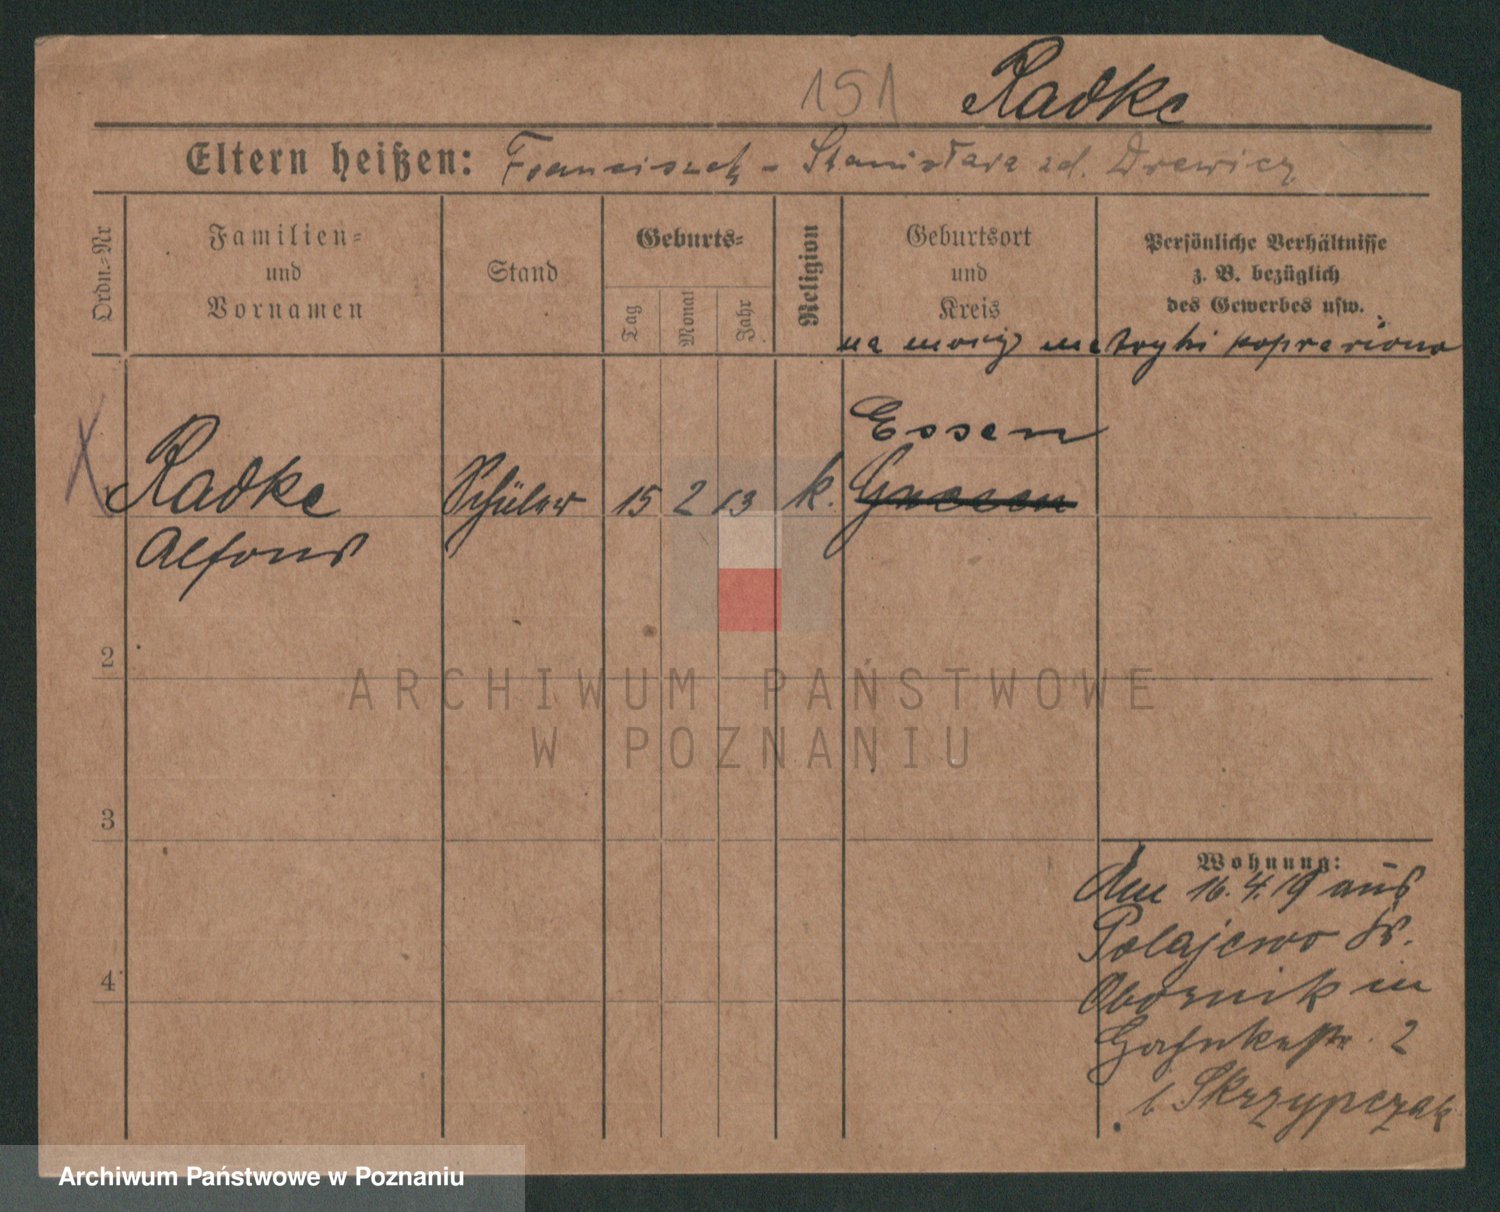 151 Radke
Eltern heißen: Franciszek - Stanisława zd. Drewicz
Ordn.-Nr
Familien- und Vornamen
Stand
Geburts-
Tag
Monat
Jahr
Religion
Geburtsort und Kreis
Persönliche Verhältnisse
z. B. bezüglich
des Gewerbes usw.
na mocy metryki poprawiono
Essen
X Radke Schüler 15 2 13 k. Gnesen
Alfons
2
3
4
Wohnung:
Am 16.4.19 aus
Polajewo Kr.
Obornik in
2
b. Skrzypczak
ARCHIWUM PAŃSTWOWE
W POZNANIU
Archiwum Państwowe w Poznaniu